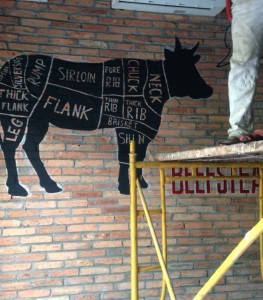 RUMP
SIRLOIN
FORE
RIB
CHUCK
NECK
THICK
FLANK
FLANK
THIN
RIB
THICK
RIB
BRISKET
LEG
SHIN